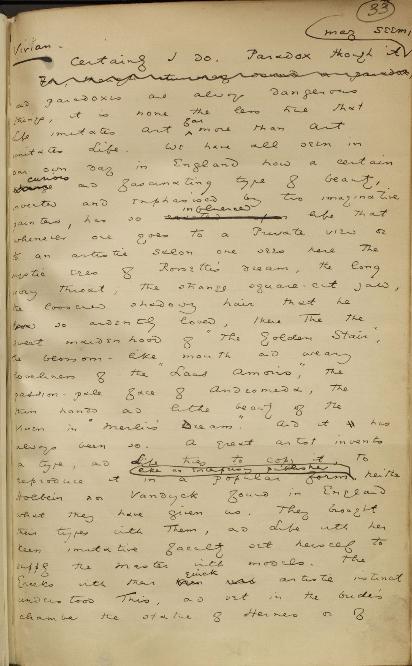 33
may seem,
Vivian.
Certainly I do. Paradox though it
and paradoxes are always dangerous
things, it is none the less true that
Life imitates art far more than Art
imitates Life. We have all seen in
our own day in England how a certain
curious and fascinating type of beauty,
invented and emphasised by two imaginative
painters, has so influenced Life that
whenever one goes to a Private view or
to an artistic salon one sees here the
mystic eyes of Rossetti's dream, the long
ivory throat, the strange square-cut jaw,
the loosened shadowy hair that he
so ardently loved, there the
sweet maidenhood of "The Golden Stair",
the blossom-like mouth and weary
loveliness of the "Laus Amoris", the
passion-pale face of Andromeda, the
thin hands and lithe beauty of the
Vivien in "Merlin's Dream". And it has
always been so. A great artist invents
a type, and Life tries to copy it, to
reproduce it in a popular form, like an enterprising publisher neither
Holbein nor Vandyck found in England
what they have given us. They brought
their types with them, and Life with her
keen imitative faculty set herself to
supply the master with models. The
Greeks with their quick artistic instinct
understood this, and set in the bride's
chamber the statue of Hermes or of